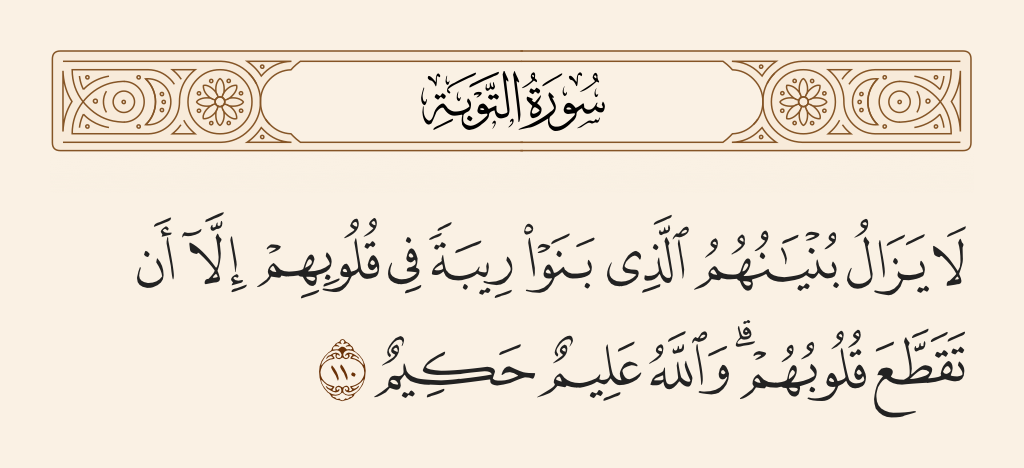 سُورَةُ التَّوۡبَةِ
لَا يَزَالُ بُنۡيَـٰنُهُمُ ٱلَّذِى بَنَوۡا۟ رِيبَةً فِى قُلُوبِهِمۡ إِلَّآ أَن
تَقَطَّعَ قُلُوبُهُمۡۗ وَٱللَّهُ عَلِيمٌ حَكِيمٌ ١١٠